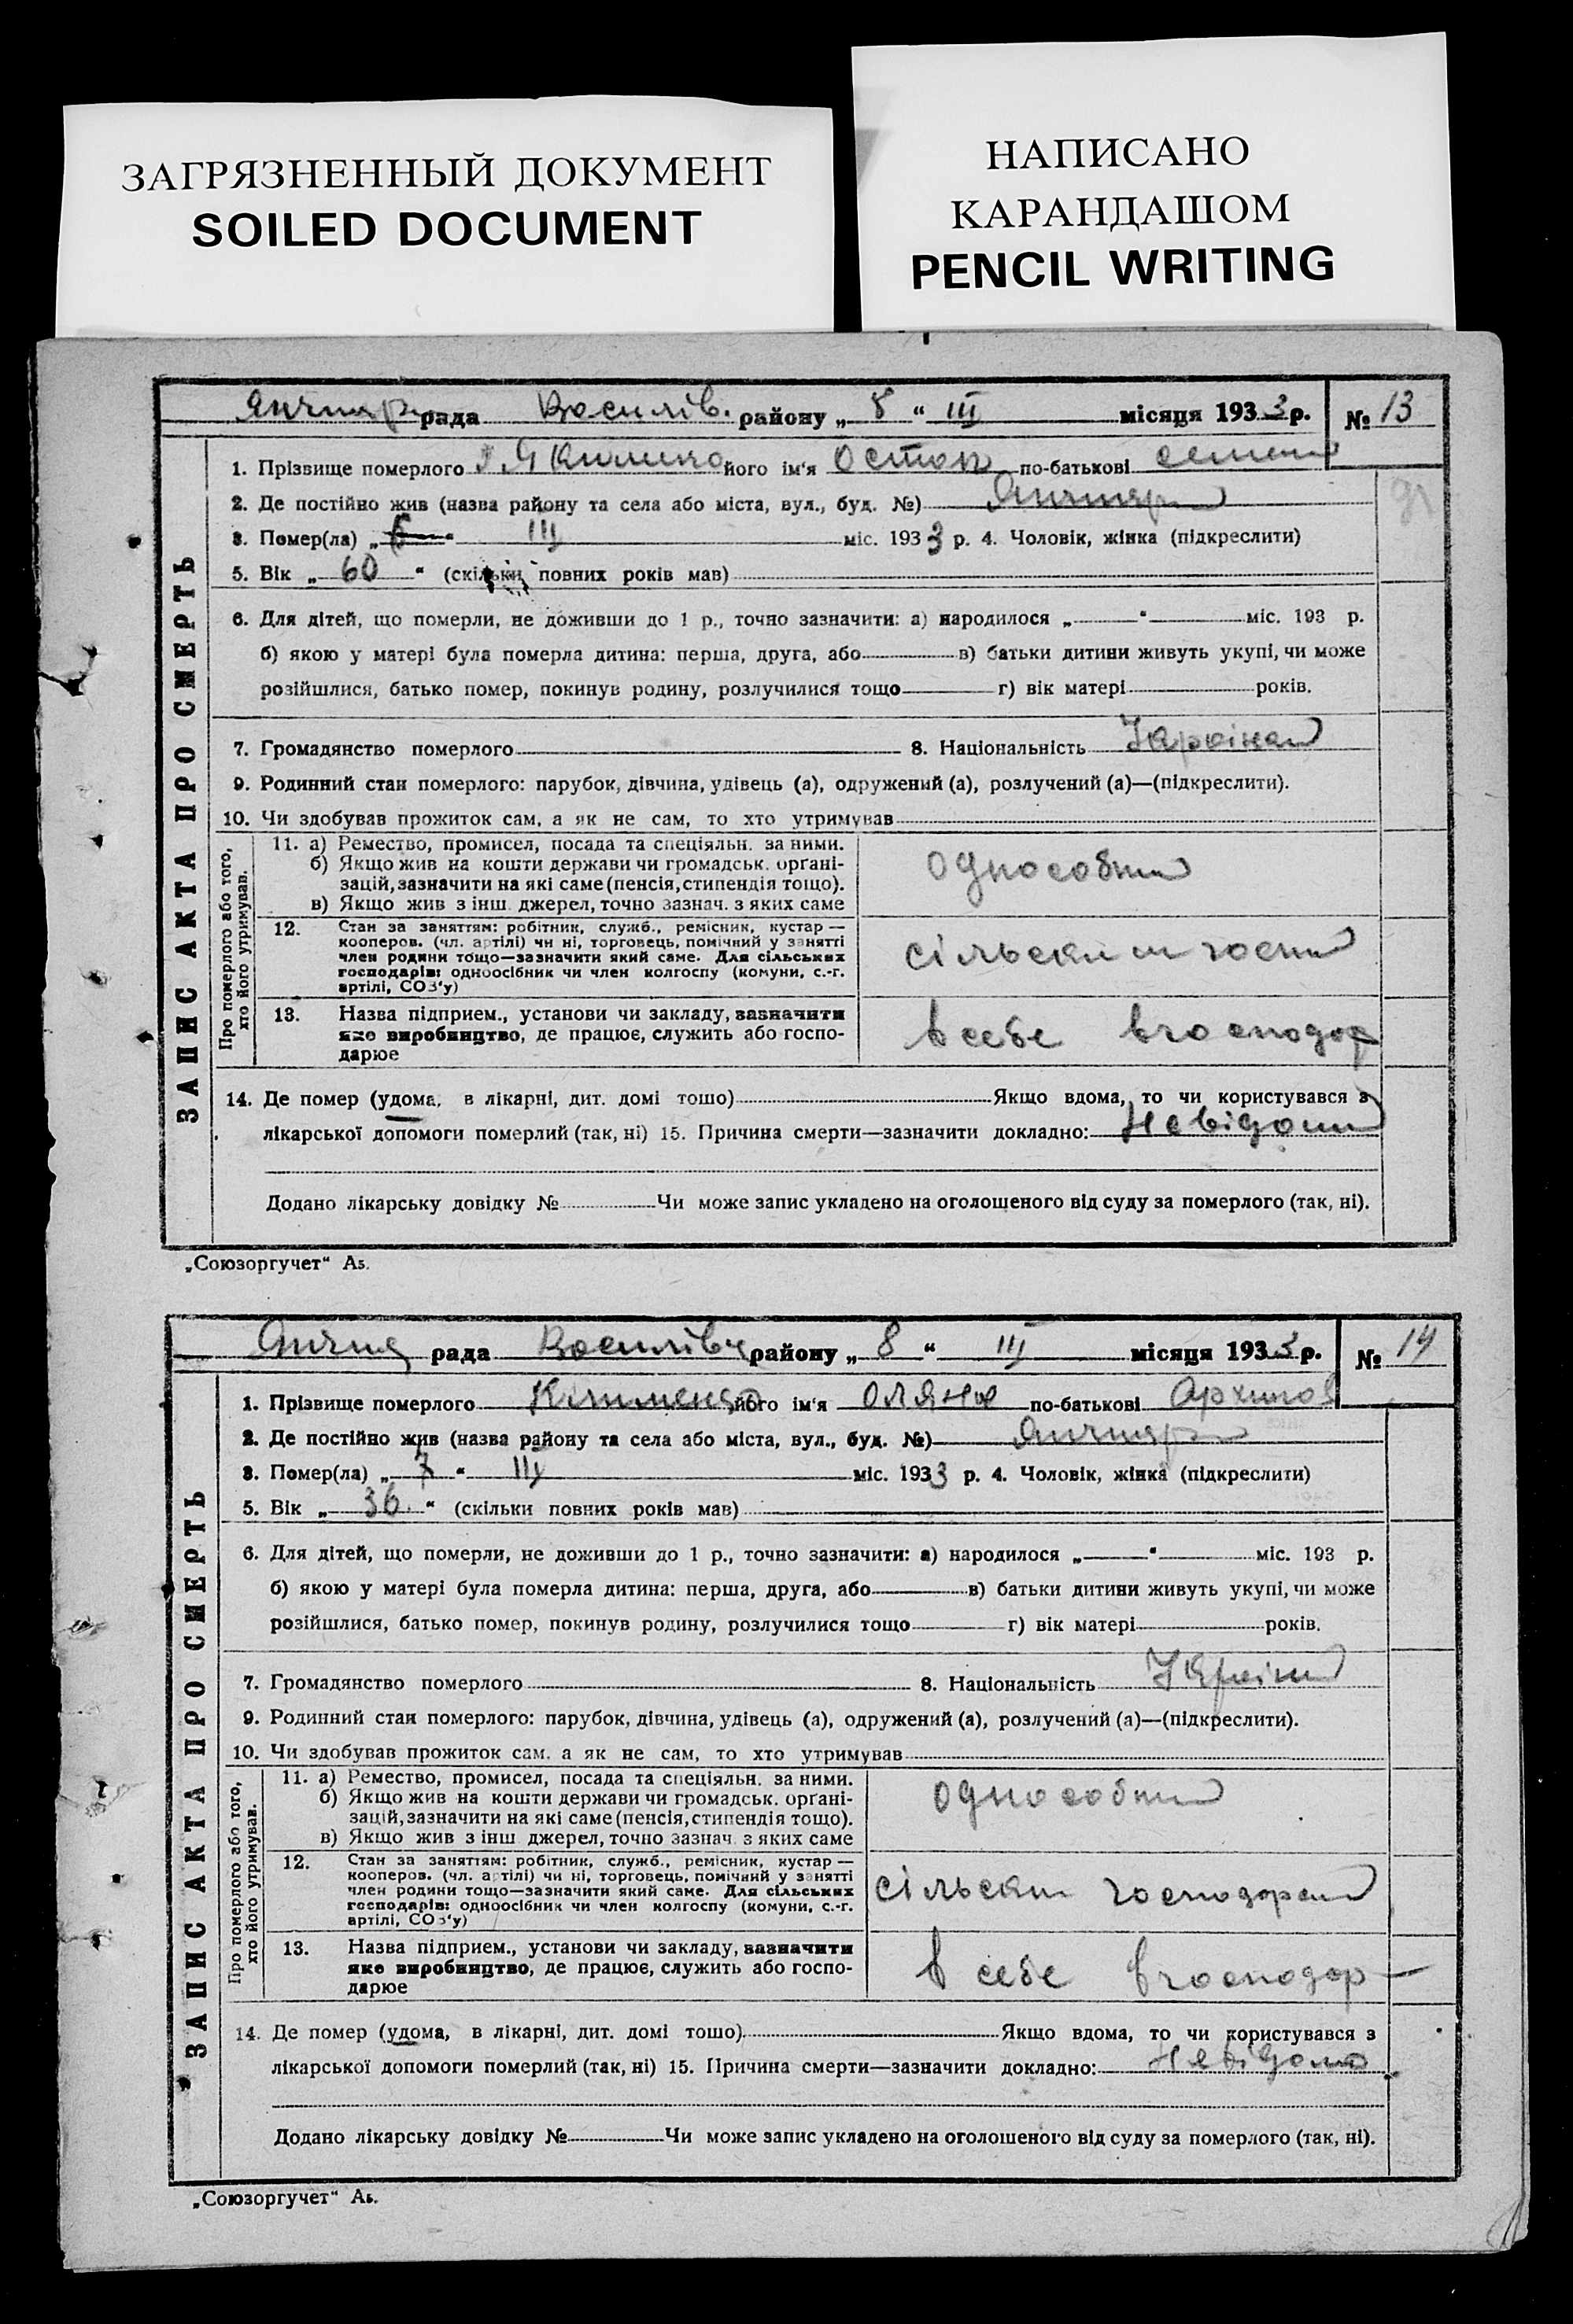 ЗАГРЯЗНЕННЫЙ ДОКУМЕНТ
SOILED DOCUMENT
НАПИСАНО
КАРАНДАШОМ
PENCIL WRITING
рада Василів. району „ 8 “ III місяця 193 3 р. № 13
ЗАПИС АКТА ПРО СМЕРТЬ
1. Прізвище померлого Якименко його ім'я Остап по-батькові семен
2. Де постійно жив (назва району та села або міста, вул., буд. №)
3. Помер(ла) „ 6 “ III міс. 193 3 р. 4. Чоловік, жінка (підкреслити)
5. Вік „ 60 “ (скільки повних років мав)
6. Для дітей, що померли, не доживши до 1 р., точно зазначити: а) народилося „ “ міс. 193 р.
б) якою у матері була померла дитина: перша, друга, або в) батьки дитини живуть укупі, чи може
розійшлися, батько помер, покинув родину, розлучилися тощо г) вік матері років.
7. Громадянство померлого 8. Національність Україн
9. Родинний стан померлого: парубок, дівчина, удівець (а), одружений (а), розлучений (а)—(підкреслити).
10. Чи здобував прожиток сам, а як не сам, то хто утримував
Про померлого або того,
хто його утримував.
11. а) Ремество, промисел, посада та спеціяльн. за ними.
б) Якщо жив на кошти держави чи громадськ. орґані-
зацій, зазначити на які саме (пенсія, стипендія тощо).
в) Якщо жив з інш. джерел, точно зазнач. з яких саме
однособн
12. Стан за заняттям: робітник, служб., ремісник, кустар —
кооперов. (чл. артілі) чи ні, торговець, помічний у занятті
член родини тощо—зазначити який саме. Для сільських
господарів: одноосібник чи член колгоспу (комуни, с.-г.
артілі, СОЗ'у)
сільским госп
13. Назва підприєм., установи чи закладу, зазначити
яке виробництво, де працює, служить або госпо-
дарює
в себе в господар
14. Де помер (удома, в лікарні, дит. домі тощо) Якщо вдома, то чи користувався з
лікарської допомоги померлий (так, ні) 15. Причина смерти—зазначити докладно: Невідом
Додано лікарську довідку № Чи може запис укладено на оголошеного від суду за померлого (так, ні).
„Союзоргучет“ А5.
рада Василівц району „ 8 “ III місяця 193 3 р. № 14
ЗАПИС АКТА ПРО СМЕРТЬ
1. Прізвище померлого його ім'я оляна по-батькові Архипов
2. Де постійно жив (назва району та села або міста, вул., буд. №)
3. Помер(ла) „ 7 “ III міс. 193 3 р. 4. Чоловік, жінка (підкреслити)
5. Вік „ 36. “ (скільки повних років мав)
6. Для дітей, що померли, не доживши до 1 р., точно зазначити: а) народилося „ “ міс. 193 р.
б) якою у матері була померла дитина: перша, друга, або в) батьки дитини живуть укупі, чи може
розійшлися, батько помер, покинув родину, розлучилися тощо г) вік матері років.
7. Громадянство померлого 8. Національність Україн
9. Родинний стан померлого: парубок, дівчина, удівець (а), одружений (а), розлучений (а)—(підкреслити).
10. Чи здобував прожиток сам, а як не сам, то хто утримував
Про померлого або того,
хто його утримував.
11. а) Ремество, промисел, посада та спеціяльн. за ними.
б) Якщо жив на кошти держави чи громадськ. орґані-
зацій, зазначити на які саме (пенсія, стипендія тощо).
в) Якщо жив з інш. джерел, точно зазнач. з яких саме
однособн
12. Стан за заняттям: робітник, служб., ремісник, кустар —
кооперов. (чл. артілі) чи ні, торговець, помічний у занятті
член родини тощо—зазначити який саме. Для сільських
господарів: одноосібник чи член колгоспу (комуни, с.-г.
артілі, СОЗ'у)
сільским господарем
13. Назва підприєм., установи чи закладу, зазначити
яке виробництво, де працює, служить або госпо-
дарює
в себе в господар
14. Де помер (удома, в лікарні, дит. домі тощо) Якщо вдома, то чи користувався з
лікарської допомоги померлий (так, ні) 15. Причина смерти—зазначити докладно: Невідомо
Додано лікарську довідку № Чи може запис укладено на оголошеного від суду за померлого (так, ні).
„Союзоргучет“ А5.